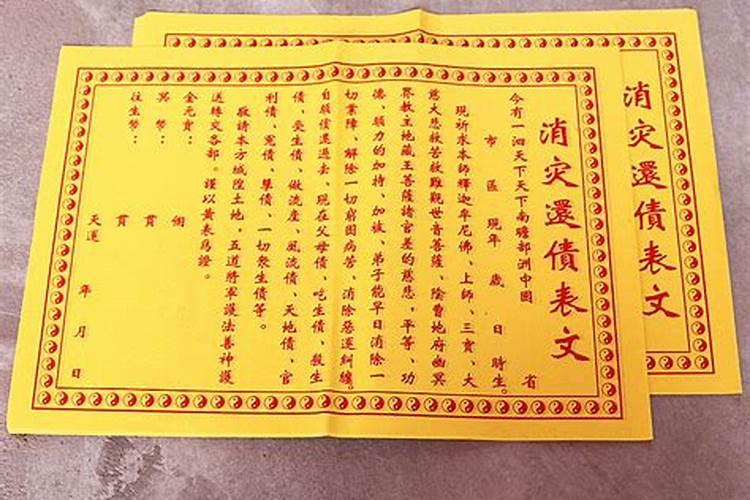 消灾還債表文
今有一泗天下天下南贍部洲中國 省
市 區 現年 歲 日 時生。
現祈求本師釋迦牟尼佛、上師、三寶、大
慈大悲救苦救難觀世音菩薩、陰曹地府幽冥
界教主地藏王菩薩諸官差的慈悲，平等、功
德、願力的加持、加被、弟子能早日消除一
切業障、解除一切窮困病苦、消除惡運糾纏。
自願償還過去、現在父母債、吃生債、殺生
債、受生債、做流產、風流債、天地債、官
利債、冤債、孽債、一切衆生債等。
敬請本方城隍土地，五道將軍護法善神護
送轉交各部。謹以黄表爲證。
金元寶： 個
冥幣： 貫
往生幣： 貫
天運 年 月 日
消灾還債表文